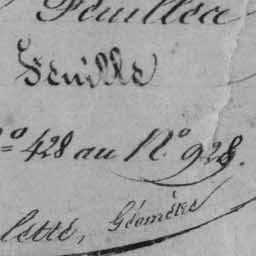 Feuillée
Feuille
No 428 au No 928.
lette, Géomètre